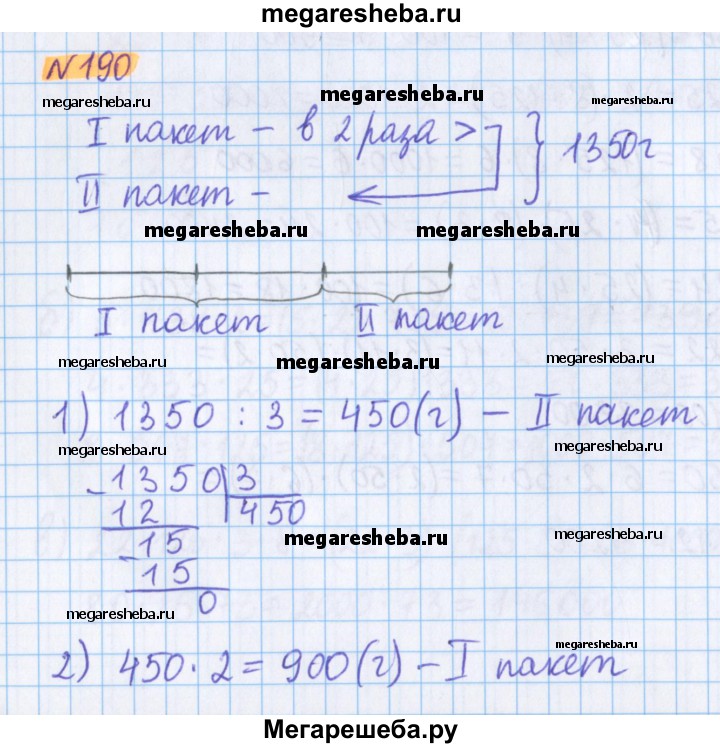 megaresheba.ru
N 190
megaresheba.ru megaresheba.ru megaresheba.ru
I пакет - в 2 раза >
} 1350г
II пакет -
megaresheba.ru megaresheba.ru
I пакет II пакет
megaresheba.ru megaresheba.ru megaresheba.ru
1) 1350 : 3 = 450 (г) - II пакет
megaresheba.ru megaresheba.ru
- 1350 | 3
12 450
megaresheba.ru megaresheba.ru
- 15
15
0
megaresheba.ru
megaresheba.ru
2) 450 · 2 = 900 (г) - I пакет
Мегарешеба.ру